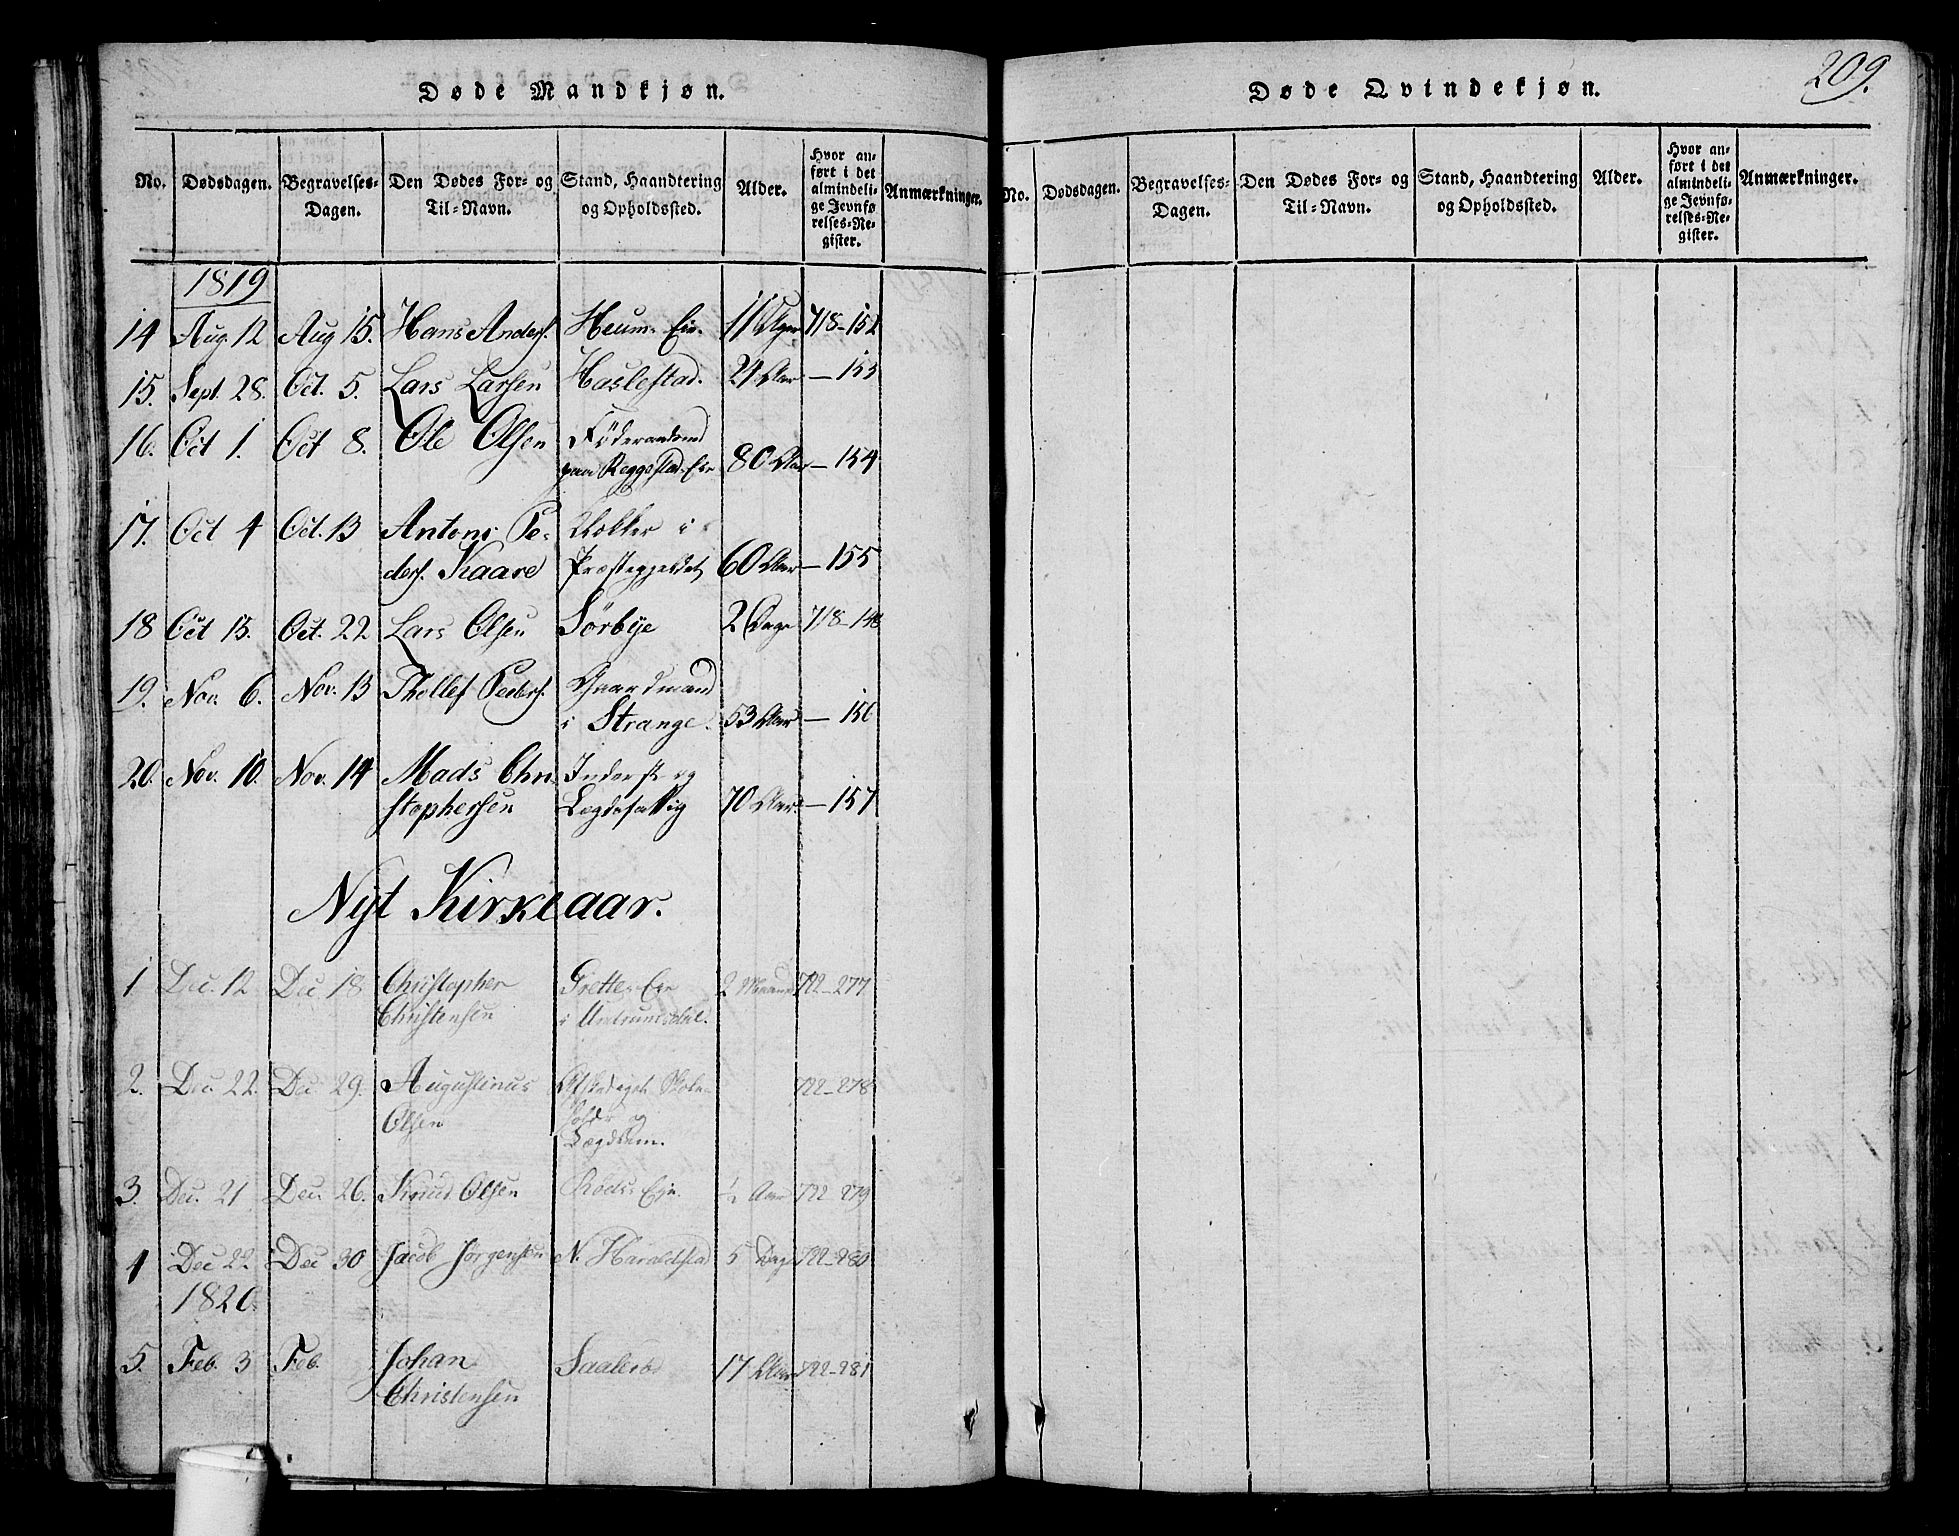 209.
Døde Mandkjøn.
No. Dødsdagen. Begravelses-Dagen. Den Dødes For- og Til-Navn. Stand, Haandtering og Opholdssted. Alder. Hvor anført i det almindelige Jevnførelses-Register. Anmærkninger.
1819
14 Aug. 12 Aug 15. Hans Anders. Heum- Eie. 11 Uger 718-152
15. Sept. 28. Oct. 5. Lars Larsen Haslestad. 21 Aar — 153
16. Oct 1. Oct 8. Ole Olsen Föderaadsmd
paa Reggestad-Eie 80 Aar — 154
17. Oct 4 Oct. 13 Antoni Pe- Klokker i
ders. Kaare Præstegjeldet 60 Aar — 155
18 Oct 15. Oct. 22 Lars Olsen Sörbye 2 Dage 718-148
19. Nov. 6. Nov. 13 Thollef Peders. Gaardmand
i Strange. 53 Aar — 156
20. Nov. 10. Nov. 14 Mads Chri- Inderst og
stophersen Lægdsfattig 70 Aar — 157
Nyt Kirkeaar.
1 Dec. 12 Dec 18 Christopher Grette- Eie 2 Maaned 722-277
Christensen i
2. Dec. 22. Dec 29. Augustinus Afskediget Skole- 722-278
Olsen holder og
Lægdslem.
3. Dec. 21 Dec. 26. Knud Olsen Röds- Eje. ½ Aar 722-279
4 Dec 22 Dec 30 Jacob Jörgensen N. Haraldstad 5 Dage 722-280
1820.
5. Feb. 3 Feb. Johan Saaleröd 17 Aar 722-281
Christensen
Døde Qvindekjøn.
No. Dødsdagen. Begravelses-Dagen. Den Dødes For- og Til-Navn. Stand, Haandtering og Opholdssted. Alder. Hvor anført i det almindelige Jevnførelses-Register. Anmærkninger.